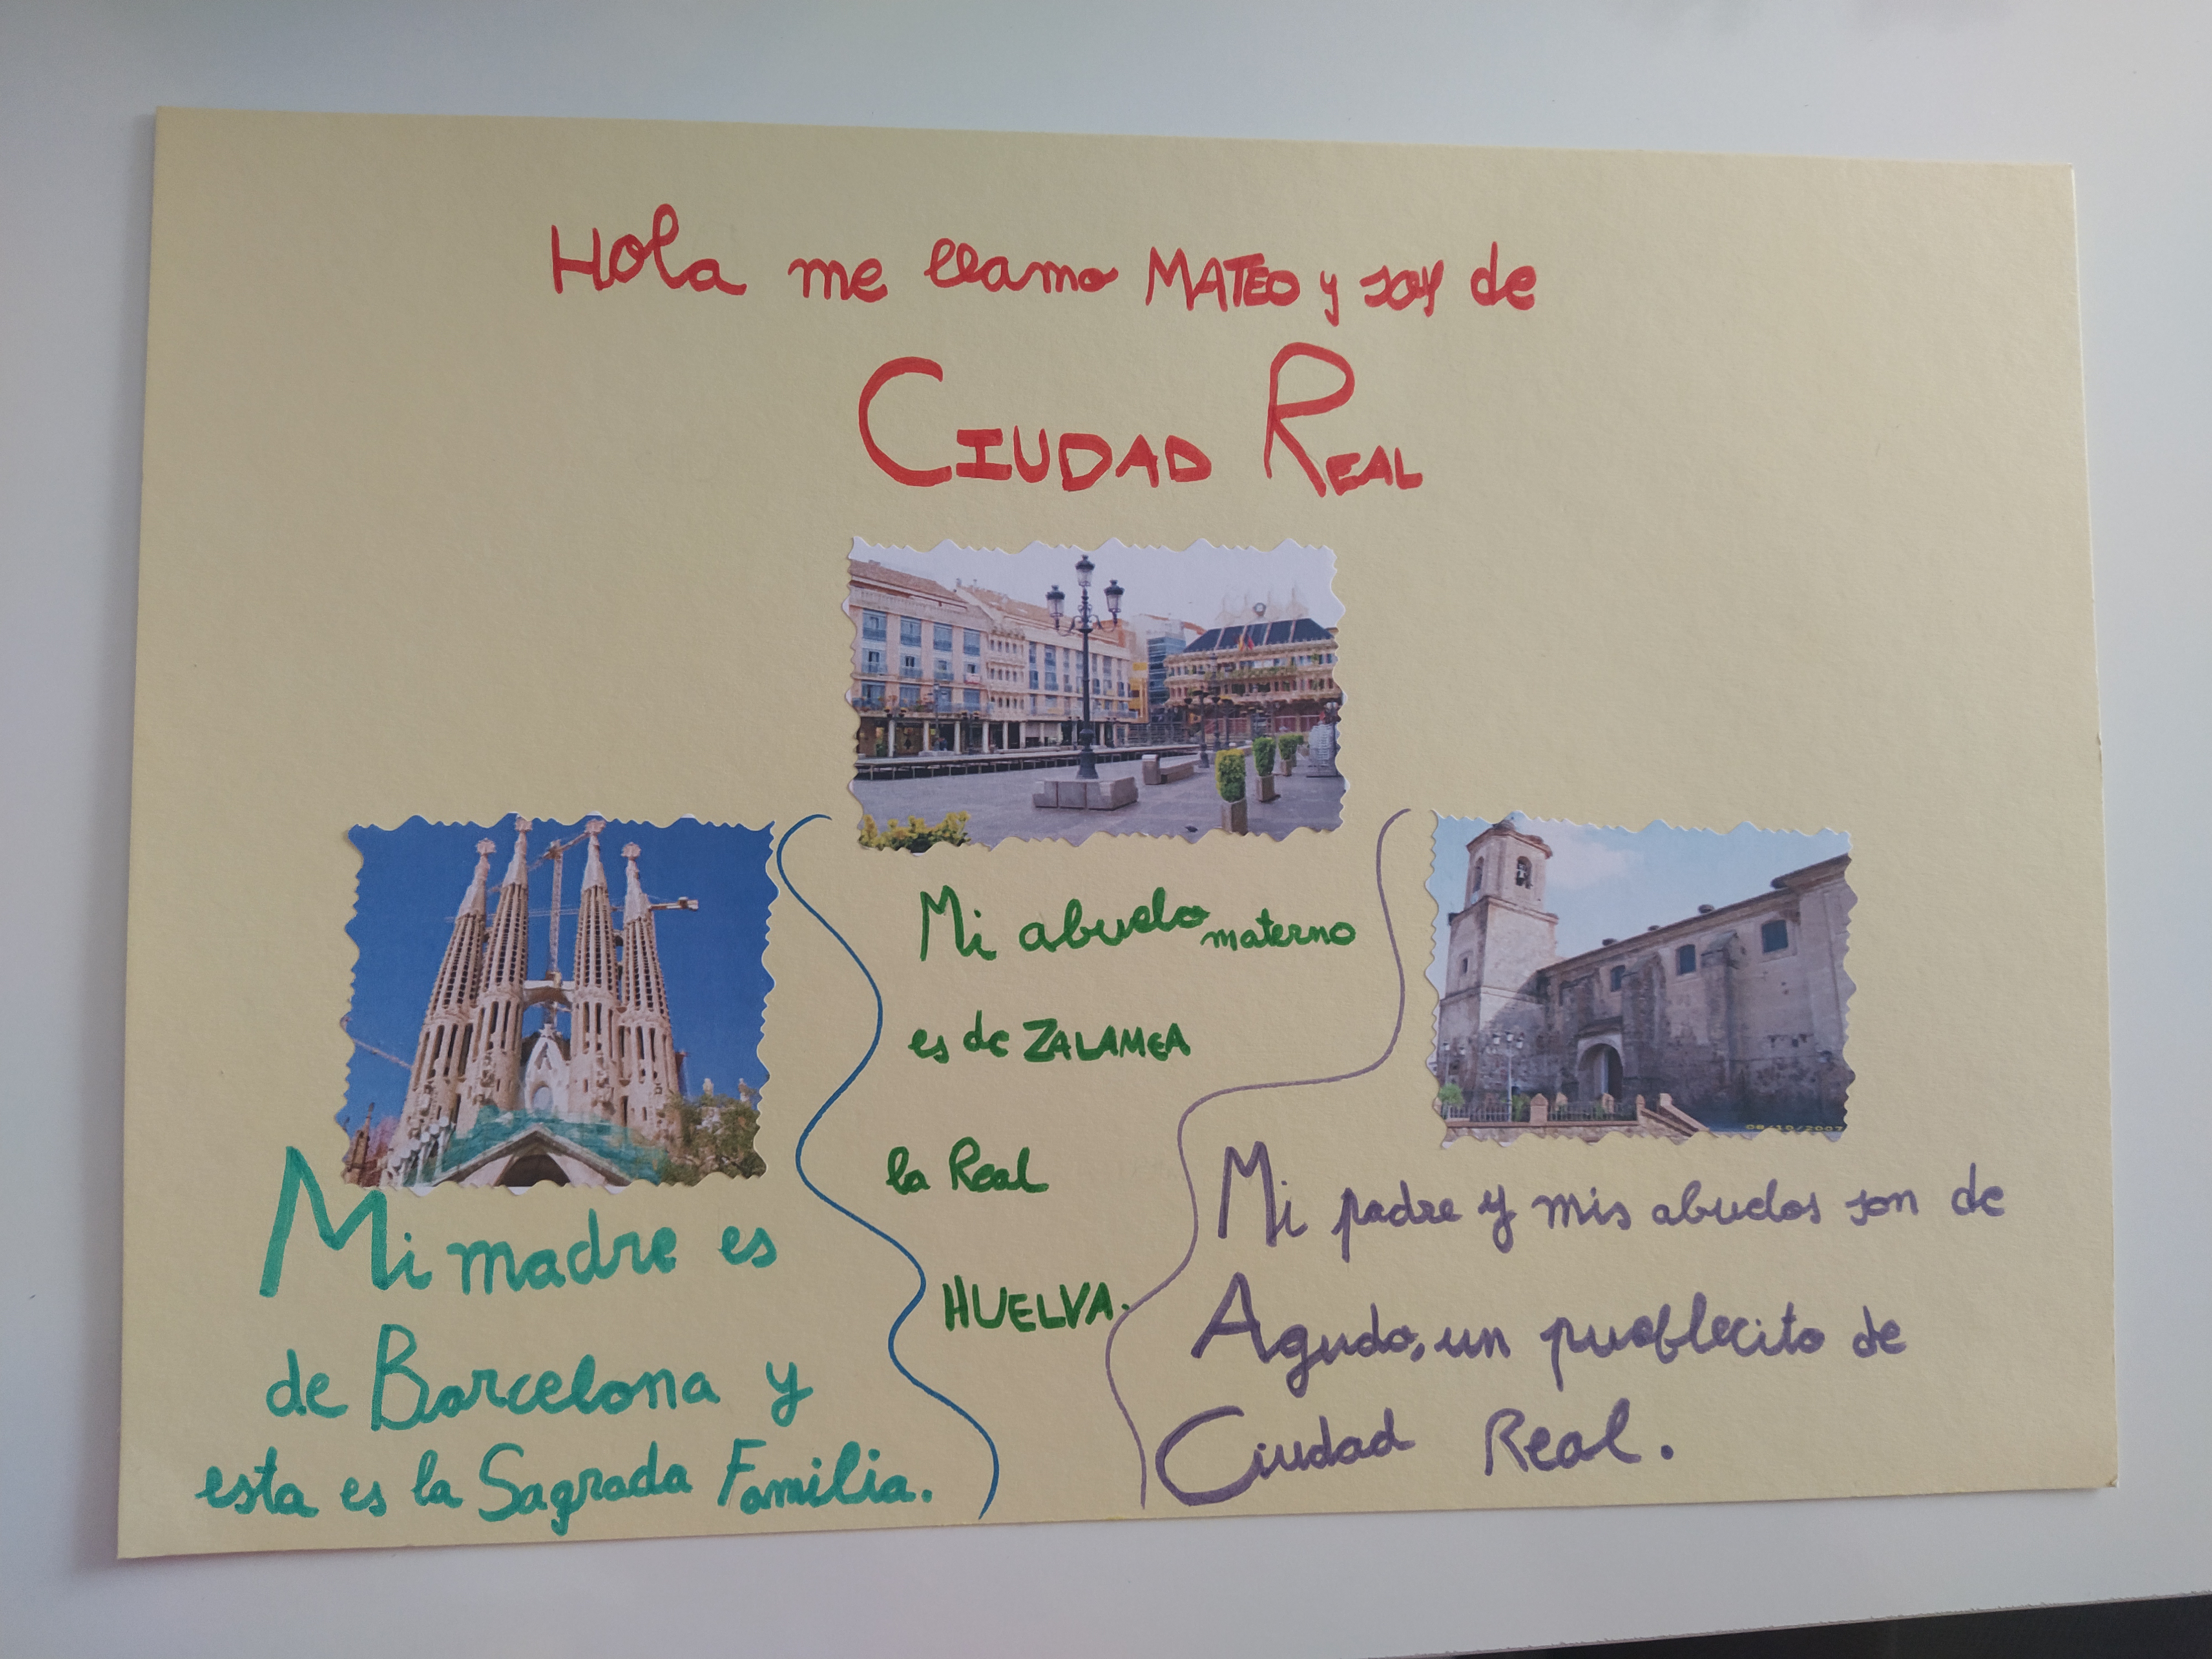 Hola me llamo MATEO y soy de
CIUDAD REAL
Mi madre es
de Barcelona y
esta es la Sagrada Familia.
Mi abuelo materno
es de ZALAMEA
la Real
HUELVA.
08/10/2007
Mi padre y mis abuelos son de
Agudo, un pueblecito de
Ciudad Real.